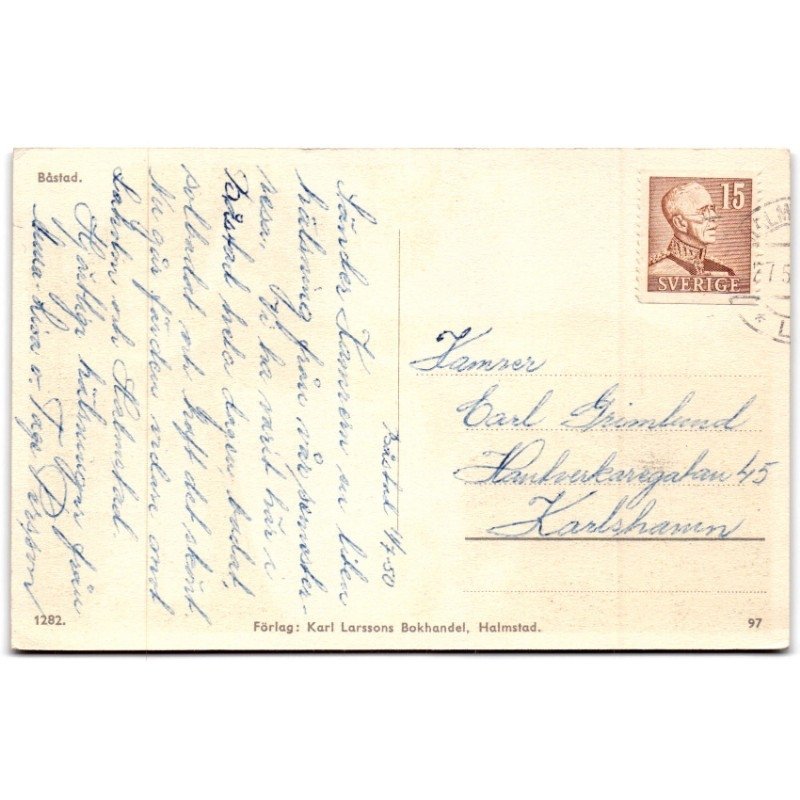 Båstad.
Båstad 11/7-50
Sänder Kamrern en liten
hälsning från vår semester-
resa. Vi ha varit här i
Båstad hela dagen, badat,
solbadat och haft det skönt.
Nu går färden vidare mot
Laholm och Halmstad.
Hjärtliga hälsningar från
Anna-Lisa o. Tage Persson
15
SVERIGE
Kamrer
Carl Grimlund
Hantverkaregatan 45
Karlshamn
1282.
Förlag: Karl Larssons Bokhandel, Halmstad.
97